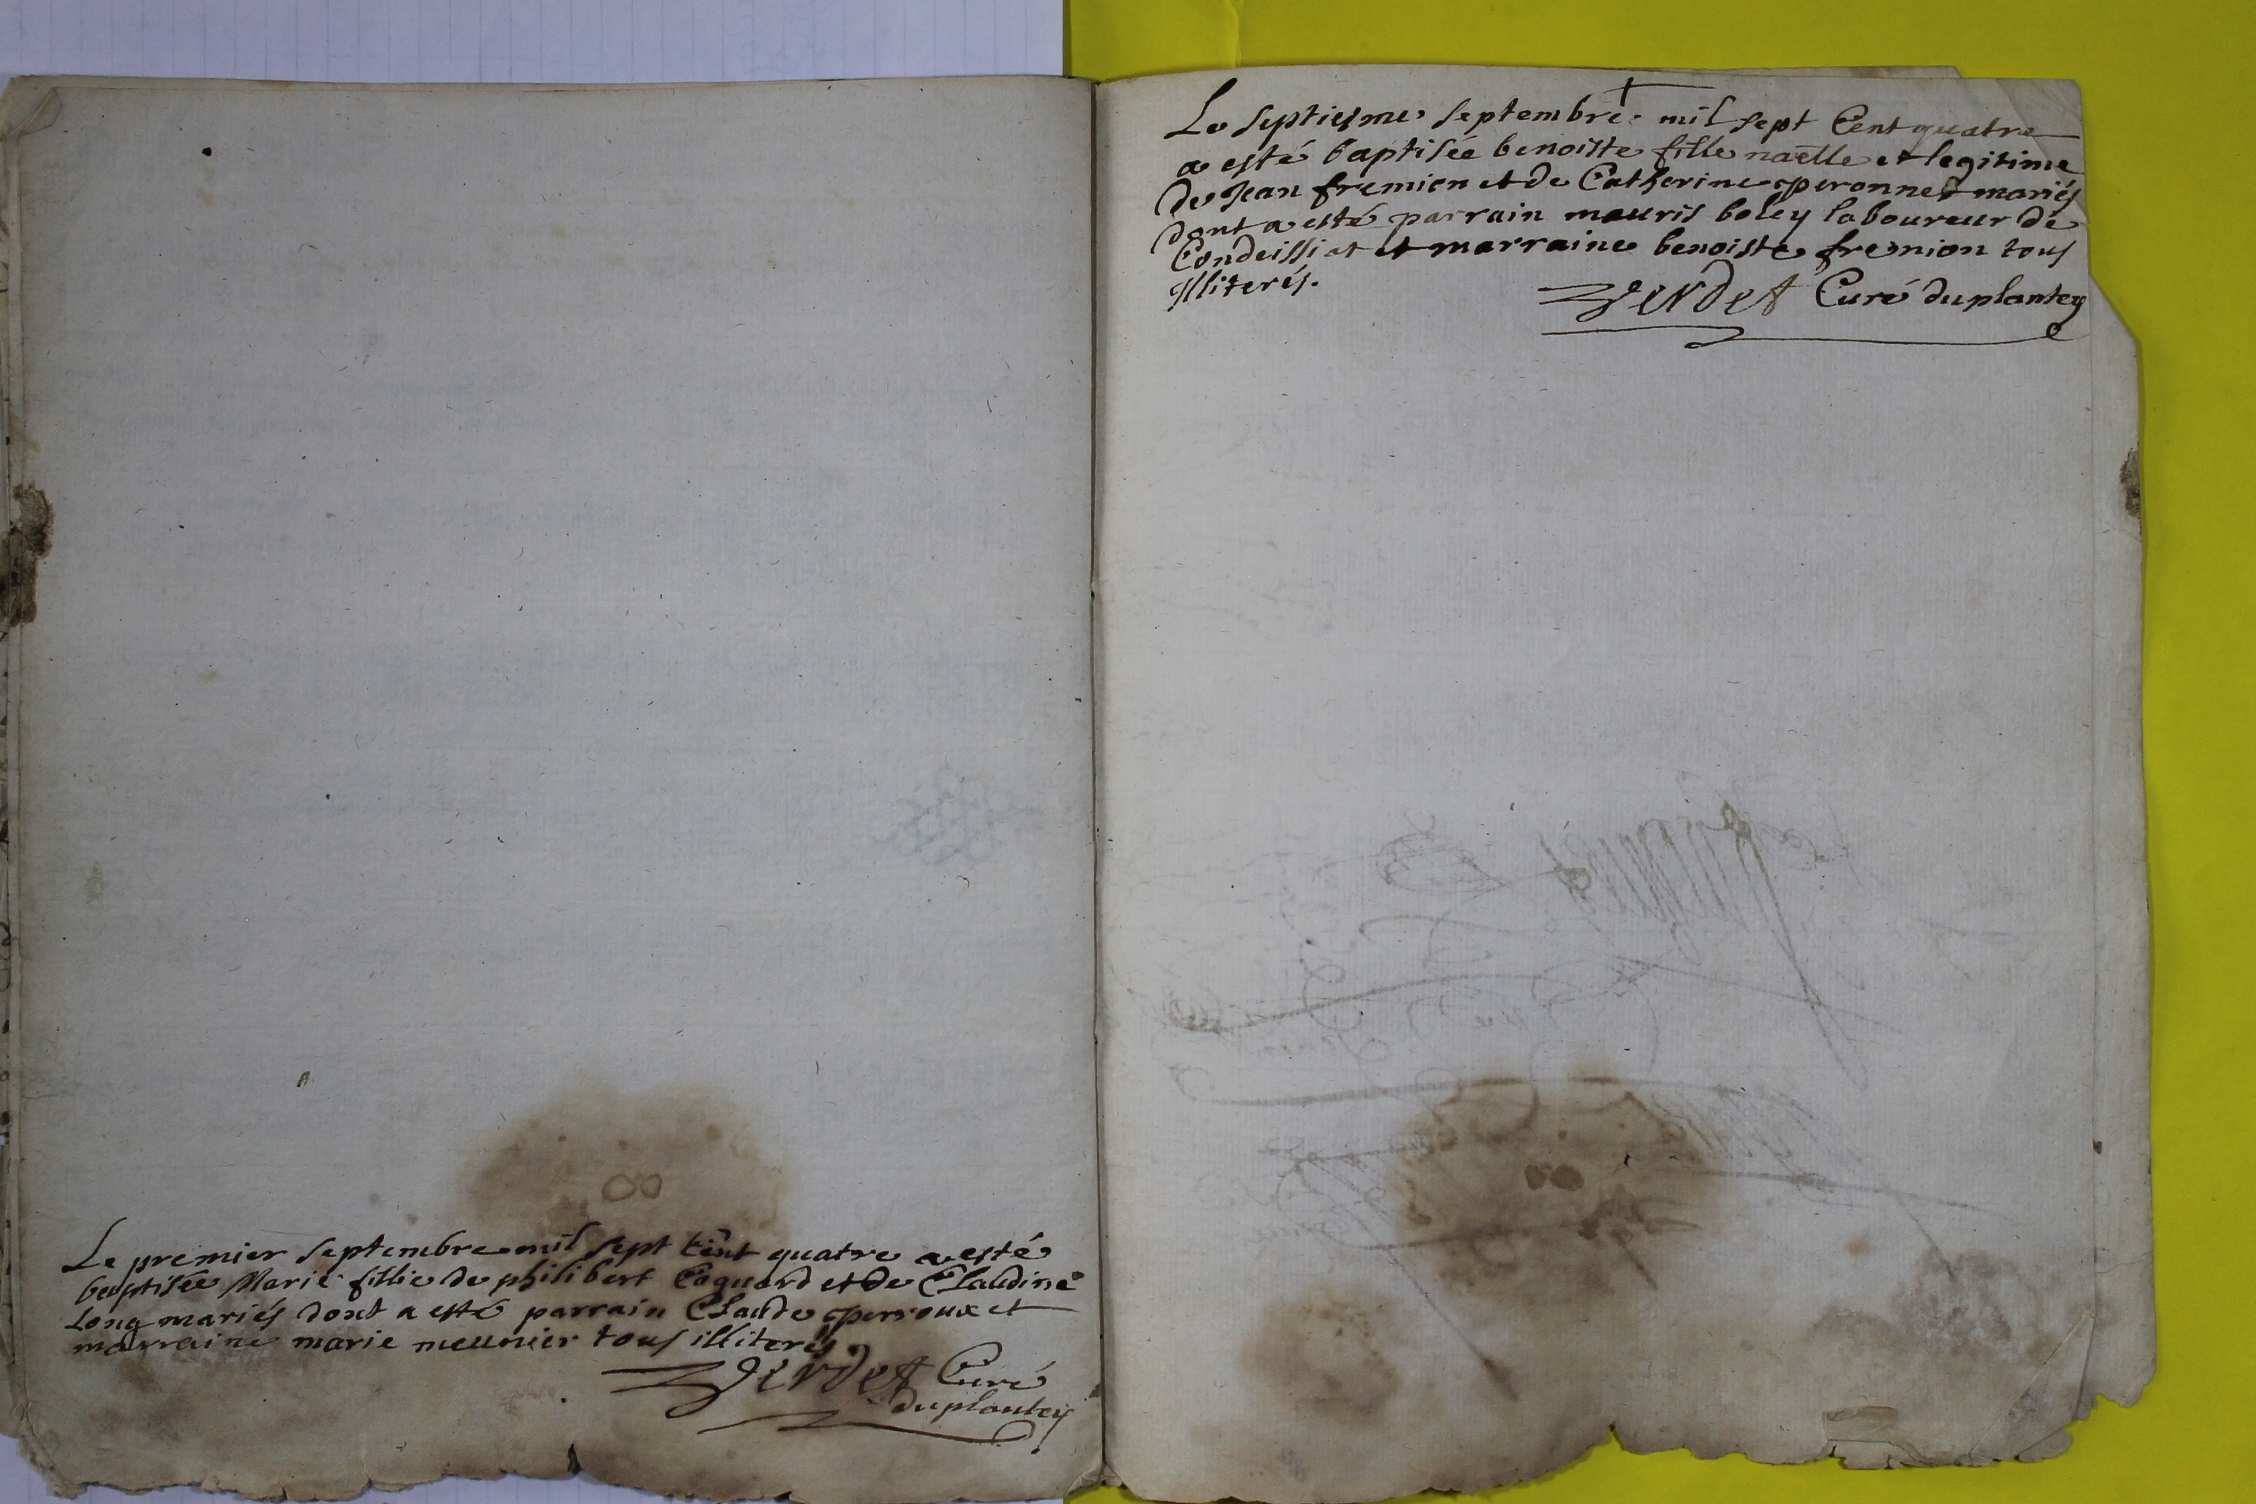 Le premier septembre mil sept Cent quatre a esté
baptisée Marie fillie de philibert Coquard et de Claudine
Long mariés dont a esté parrain Claude perroux et
marraine marie meunier tous illiterés
Verdet Curé
du plantey
Le septiesme septembre mil sept Cent quatre
a esté baptisée benoiste fille naelle et legitime
de Jean fremion et de Catherine peronnet mariés
dont a esté parrain mauris boley laboureur de
Condeissiat et marraine benoiste fremion tous
illiterés.
Verdet Curé du plantey